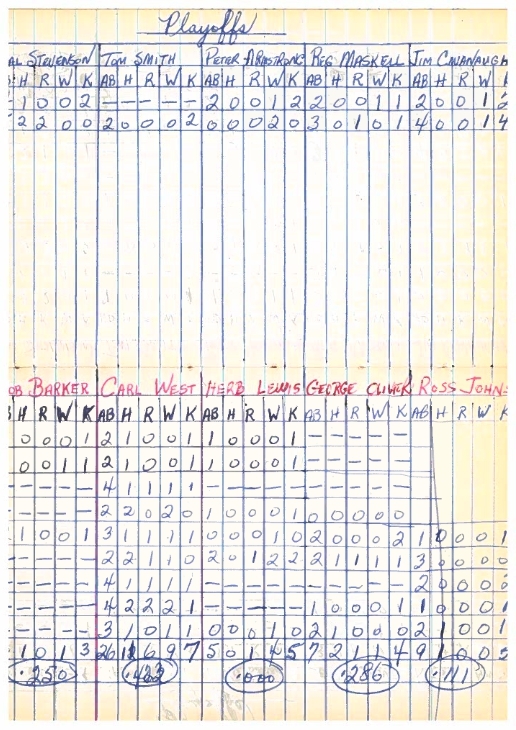 Playoffs
AL STEVENSON TOM SMITH PETER ARMSTRONG REG MASKELL JIM CAVANAUGH
H R W K AB H R W K AB H R W K AB H R W K AB H R W
1 0 0 2 - - - - - 2 0 0 1 2 2 0 0 1 1 2 0 0 1 2
2 2 0 0 2 0 0 0 2 0 0 0 2 0 3 0 1 0 1 4 0 0 1 4
OB BARKER CARL WEST HERB LEWIS GEORGE OLIVER ROSS JOHNS
H R W K AB H R W K AB H R W K AB H R W K AB H R W K
0 0 0 1 2 1 0 0 1 1 0 0 0 1 - - - - -
0 0 1 1 2 1 0 0 1 1 0 0 0 1 - - - - -
- - - - 4 1 1 1 1 - - - - - - - - - -
- - - - 2 2 0 2 0 1 0 0 0 1 0 0 0 0 0
1 0 0 1 3 1 1 1 1 0 0 0 1 0 2 0 0 0 2 1 0 0 0 1
- - - - 2 2 1 1 0 2 0 1 2 2 2 1 1 1 1 3 0 0 0 0
- - - - 4 1 1 1 1 - - - - - - - - - - 2 0 0 0
- - - - 4 2 2 2 1 - - - - - 1 0 0 0 1 1 0 0 0 1
- - - - 3 1 0 1 1 0 0 0 1 0 2 1 0 0 0 2 1 0 0 1
1 0 1 3 26 12 6 9 7 5 0 1 4 5 7 2 1 1 4 9 1 0 0
.250 .000 .286 .111